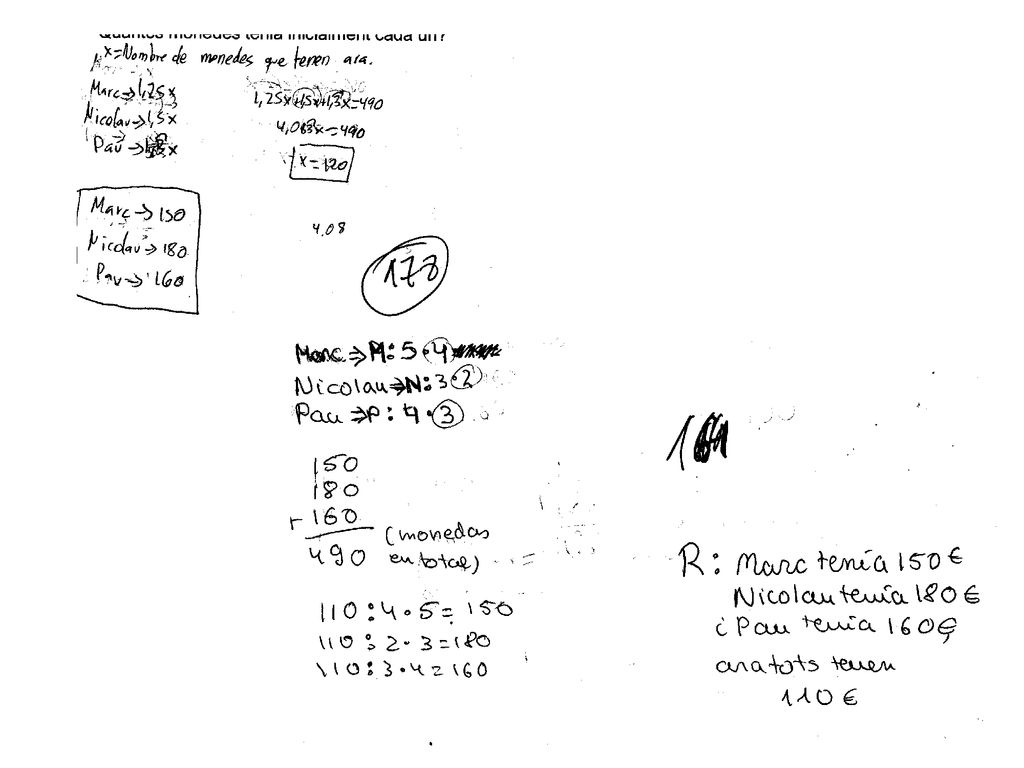 Quantes monedes tenia inicialment cada un?
x=Nombre de monedes que tenen ara.
Marc→1,25x
Nicolau→1,5x
Pau→ x
1,25x+1,5x+1,3x=490
4,083x=490
x=120
Marc→150
Nicolau→180
Pau→160
4,08
178
Marc⇒M:5·4
Nicolau⇒N:3·2
Pau⇒P:4·3
150
180
+160
490 (monedas en total)
110:4·5=150
110:2·3=180
110:3·4=160
R: Marc tenía 150€
Nicolau tenia 180€
i Pau tenia 160€
ara tots tenen
110€